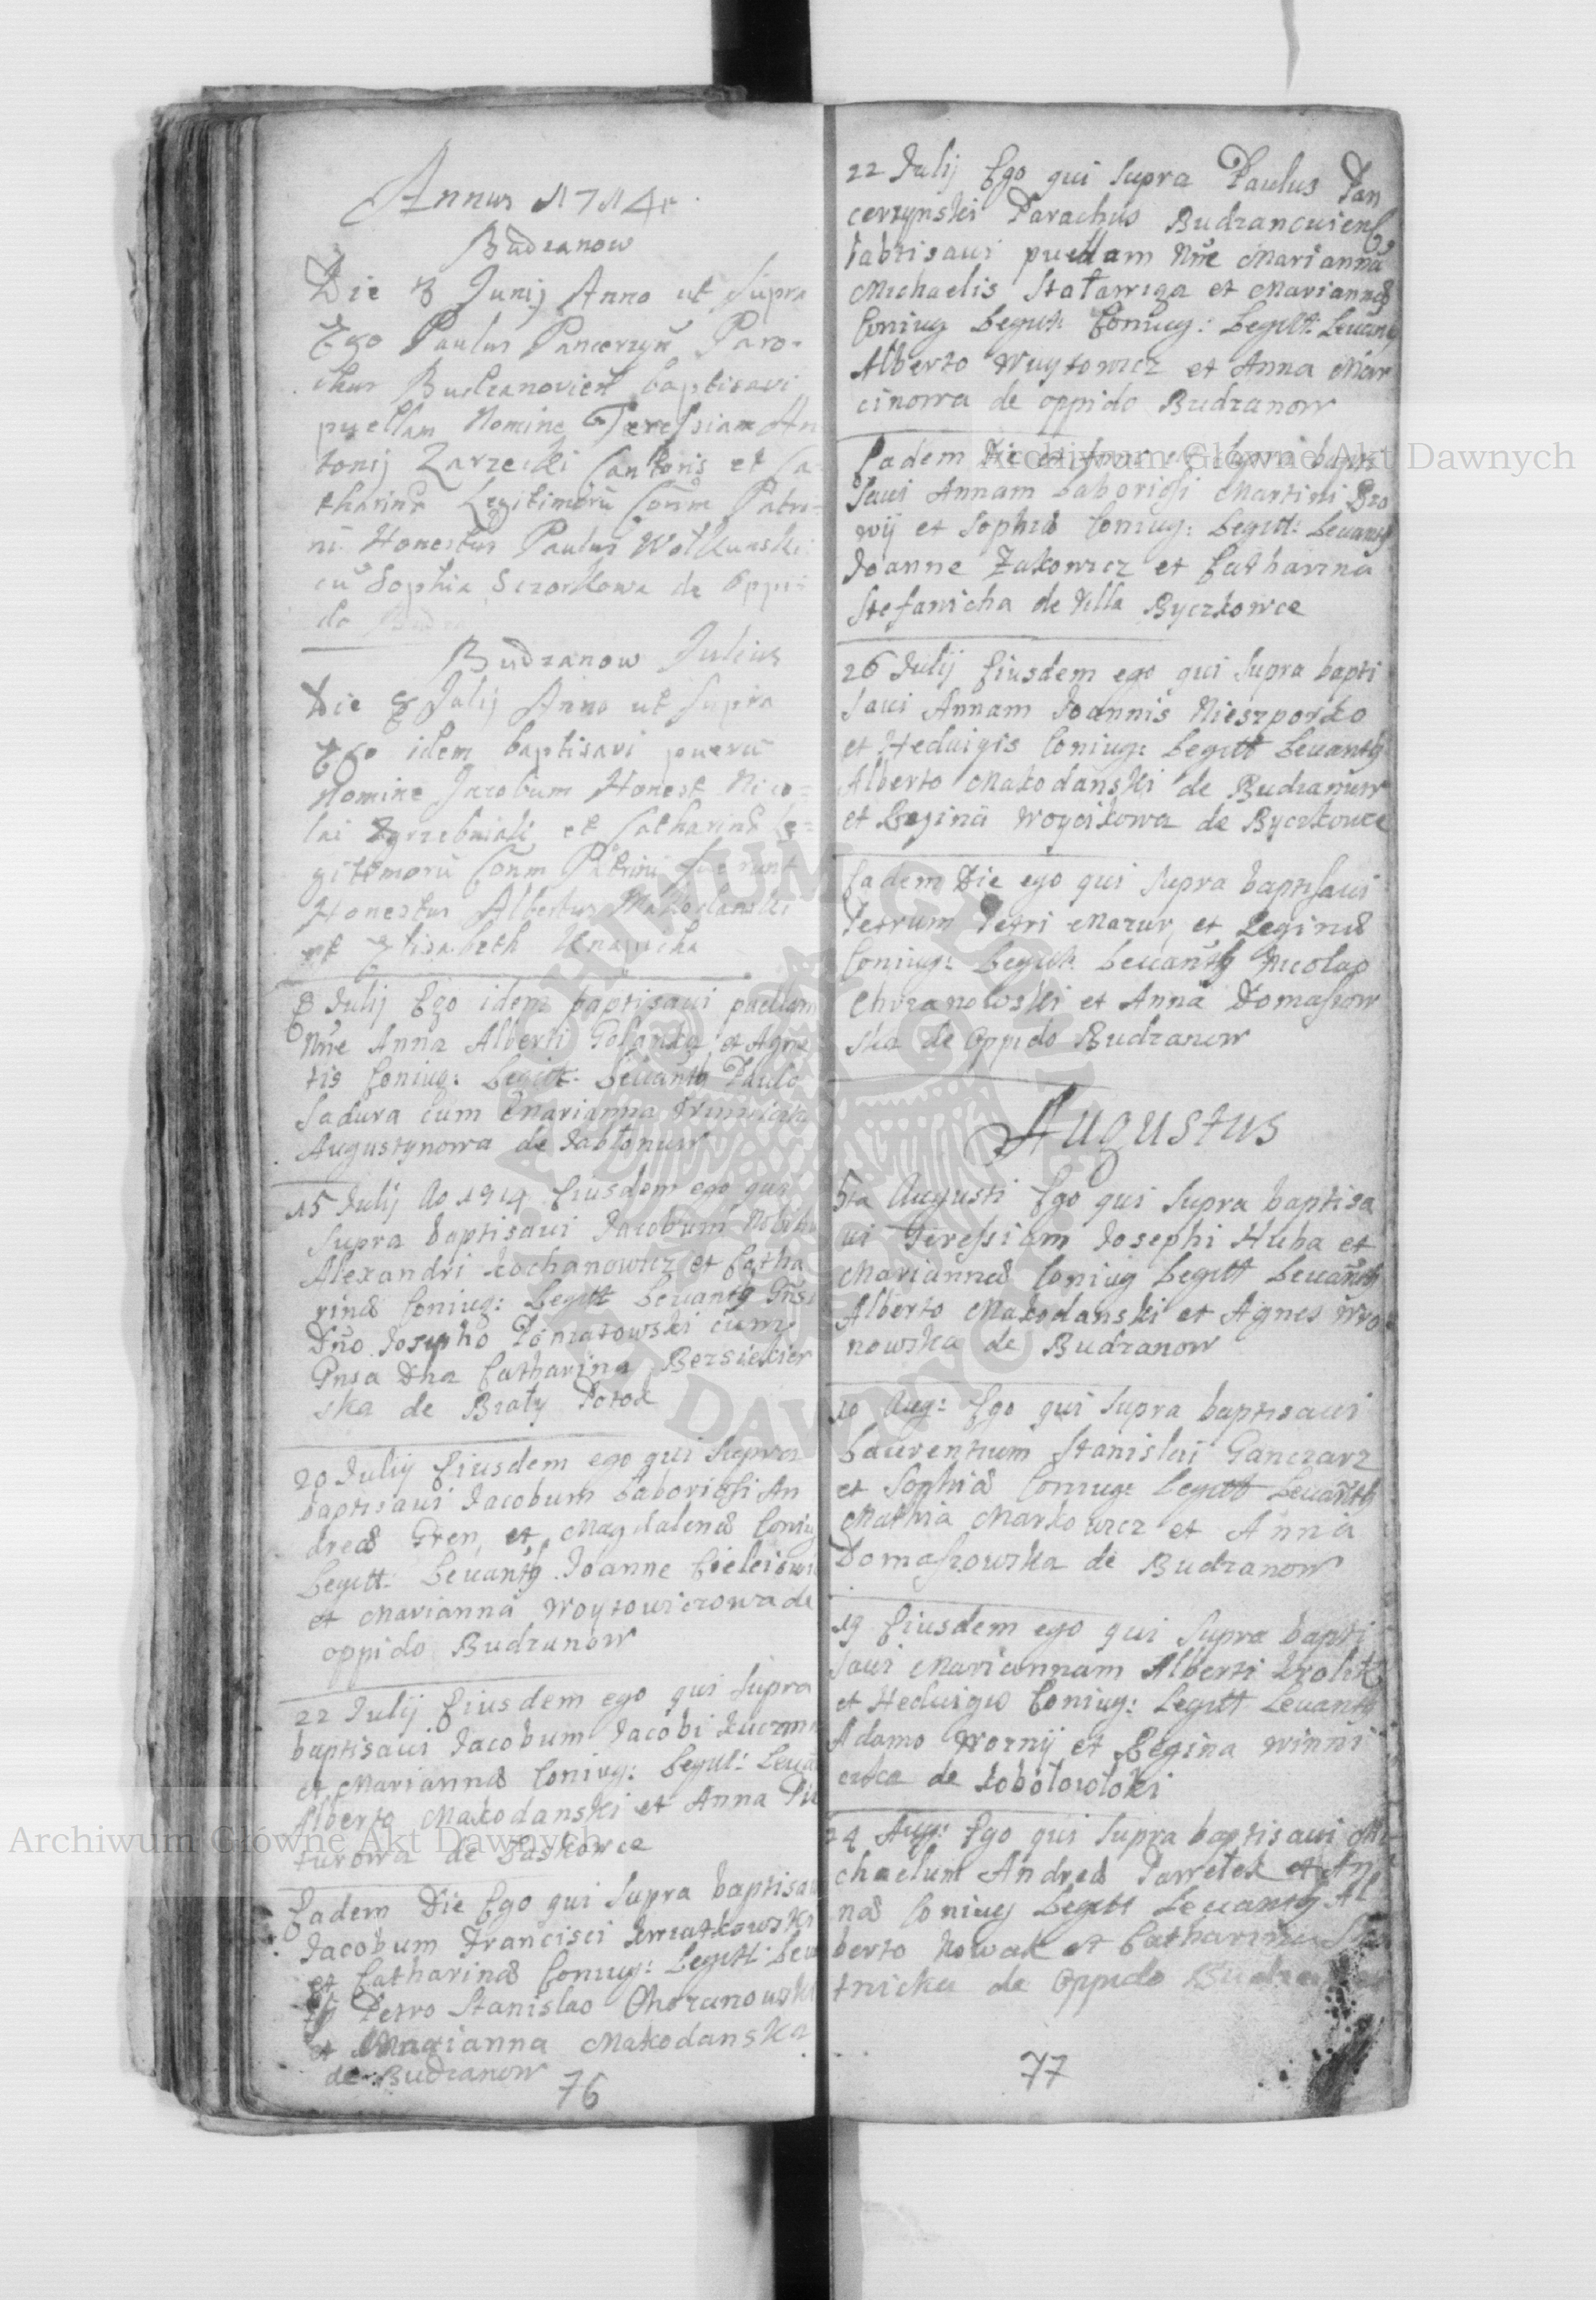 Annus 1714
Budzanow
Die 8 Junij Anno ut Supra
Ego Paulus Pancerzyń Paro-
chus Budzanovień baptisavi
puellam Nomine Teressiam An
tonij Zarzecki Cantoris et Ca-
tharinæ Legitimorū Coniūm Patri-
ni Honestus Paulus Wołkunski
cū Sophia Sczorkowa de Oppi-
do
Budzanow Julius
Die 8 Julij Anno ut Supra
Ego idem baptisavi puerū
Nomine Jacobum Honest Nico-
lai et Catharinæ Le-
gittimorū Coniūm Patrini fuerunt
Honestus Albertus Makodanski
et Elisabeth
8 Julij Ego idem baptisaui puellam
Nñe Anna Alberti et Agne
tis Coniug: Legitt: Leuantib Paulo
Sadura cum Marianna
Augustynowa de Jabłonuw
15 Julij Ao 1714 Eiusdem ego qui
Supra baptisaui Jacobum Nobilis
Alexandri Kochanowicz et Catha
rinæ Coniug: Legitt Leuantib
Dño Josepho Poniatowski cum
Gnsa Dna Catharina
ska de Biały Potok
20 Julij Eiusdem ego qui Supra
baptisaui Jacobum Laboriosi An
dreæ Gren, et Magdalenæ Coniug
Legitt: Leuantib Joanne
et Marianna Woytowiczowa de
oppido Budzanow
22 Julij Eiusdem ego qui Supra
baptisaui Jacobum Jacobi
et Mariannæ Coniug: Legitt: Leuan
Alberto Makodanski et Anna Pie
turowa de Laskowce
Eadem Die Ego qui Supra baptisaui
Jacobum Francisci Kwiatkowski
et Catharinæ Coniug: Legitt: Leuan
tib Petro Stanislao Chrzanowski
et Marianna Makodanska
de Budzanow
76
22 Julij Ego qui Supra Paulus Pan
cerzynski Parachus Budzanouiens
babtisaui puellam Nñe Mariannā
Michaelis et Mariannæ
Coniug Legitt: Coniug: Legitt: Leuantib
Alberto Woytowicz et Anna Mar
cinowa de oppido Budzanow
Eadem Die et Anno ego Supra bapti
saui Annam Laboriosi Martini
et Sophiæ Coniug: Legitt: Leuantib
Joanne Zakowicz et Catharina
Stefanicha de Villa Byczkowce
26 Julij Eiusdem ego qui Supra bapti
saui Annam Joannis Nieszporko
et Heduigis Coniug: Legitt Leuantib
Alberto Makodanski de Budzanuw
et Reginā Woycikowa de Byczkowce
Eadem Die ego qui Supra baptisaui
Petrum Petri Mazur, et Reginæ
Coniug: Legitt. Leuantib Nicolao
Chrzanowski et Annā Domaszow
ska de Oppido Budzanow
Augustus
5ta Augusti Ego qui Supra baptisa
ui Teressiam Josephi Huba et
Mariannæ Coniug Legitt Leuantib
Alberto Makodanski et Agnes Wro
nowska de Budzanow
10 Aug: Ego qui Supra baptisaui
Laurentium Stanislai Ganczarz
et Sophiæ Coniug: Legitt Leuantib
Mathia Markowicz et Anna
Domaszowska de Budzanow
19 Eiusdem ego qui Supra bapti
saui Mariannam Alberti Krolik
et Heduigis Coniug: Legitt Leuantib
Adamo Wozny et Regina Winni
cka de Kobołowłoki
24 Aug: Ego qui Supra baptisaui Mi
chaelum Andreæ Pawełek et An
næ Coniug Legitt Leuantib Al
berto Nowak et Catharina
tnicka de Oppido Budzanow
77
Archiwum Główne Akt Dawnych
Archiwum Główne Akt Dawnych
ARCHIWUM GŁÓWNE AKT DAWNYCH